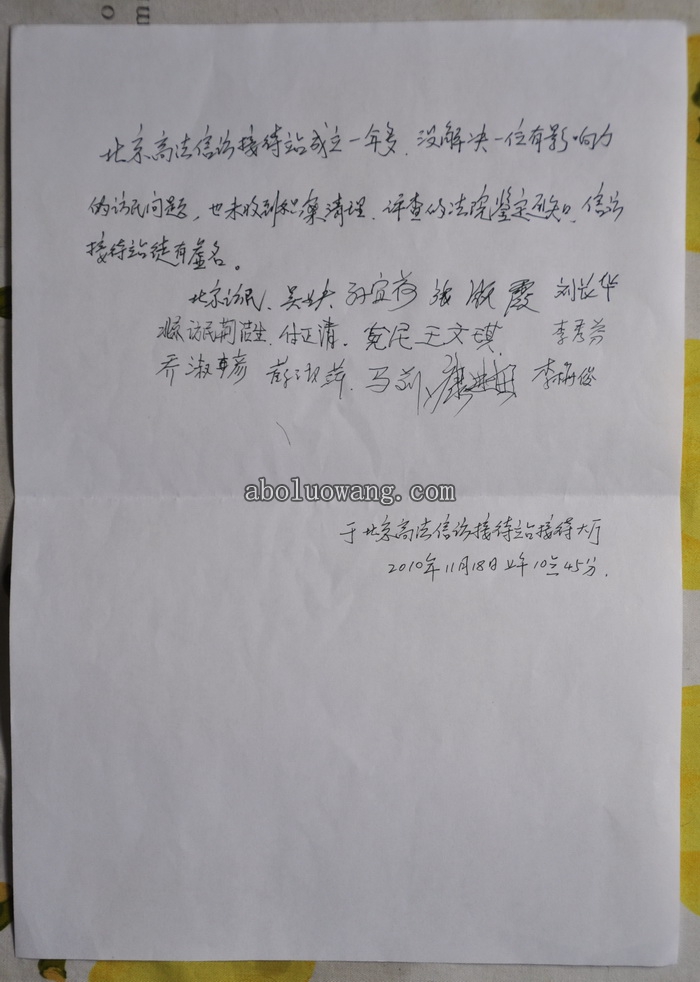 北京高法信访接待站成立一年多，没解决一位有影响力
的访民问题，也未收到积案清理、评查的法院鉴定通知，信访
接待站徒有虚名。
北京访民、吴 孙宜 张淑霞 刘长华
访民荆 生、付正清、 王文琪 李秀芬
乔淑彦 萍、马莉、 李梅俊
aboluowang.com
于北京高法信访接待站接待大厅
2010年11月18日上午10点45分.